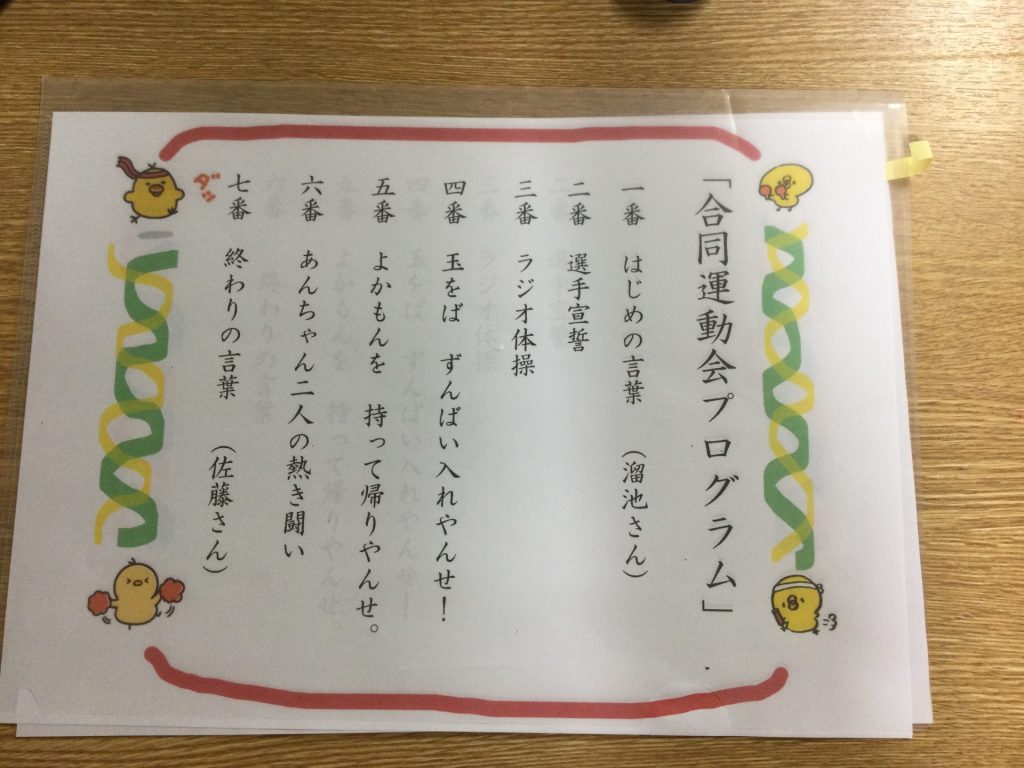 「合同運動会プログラム」
一番 はじめの言葉 （溜池さん）
二番 選手宣誓
三番 ラジオ体操
四番 玉をば ずんばい入れやんせ！
五番 よかもんを 持って帰りやんせ。
六番 あんちゃん二人の熱き闘い
七番 終わりの言葉 （佐藤さん）
ダッ